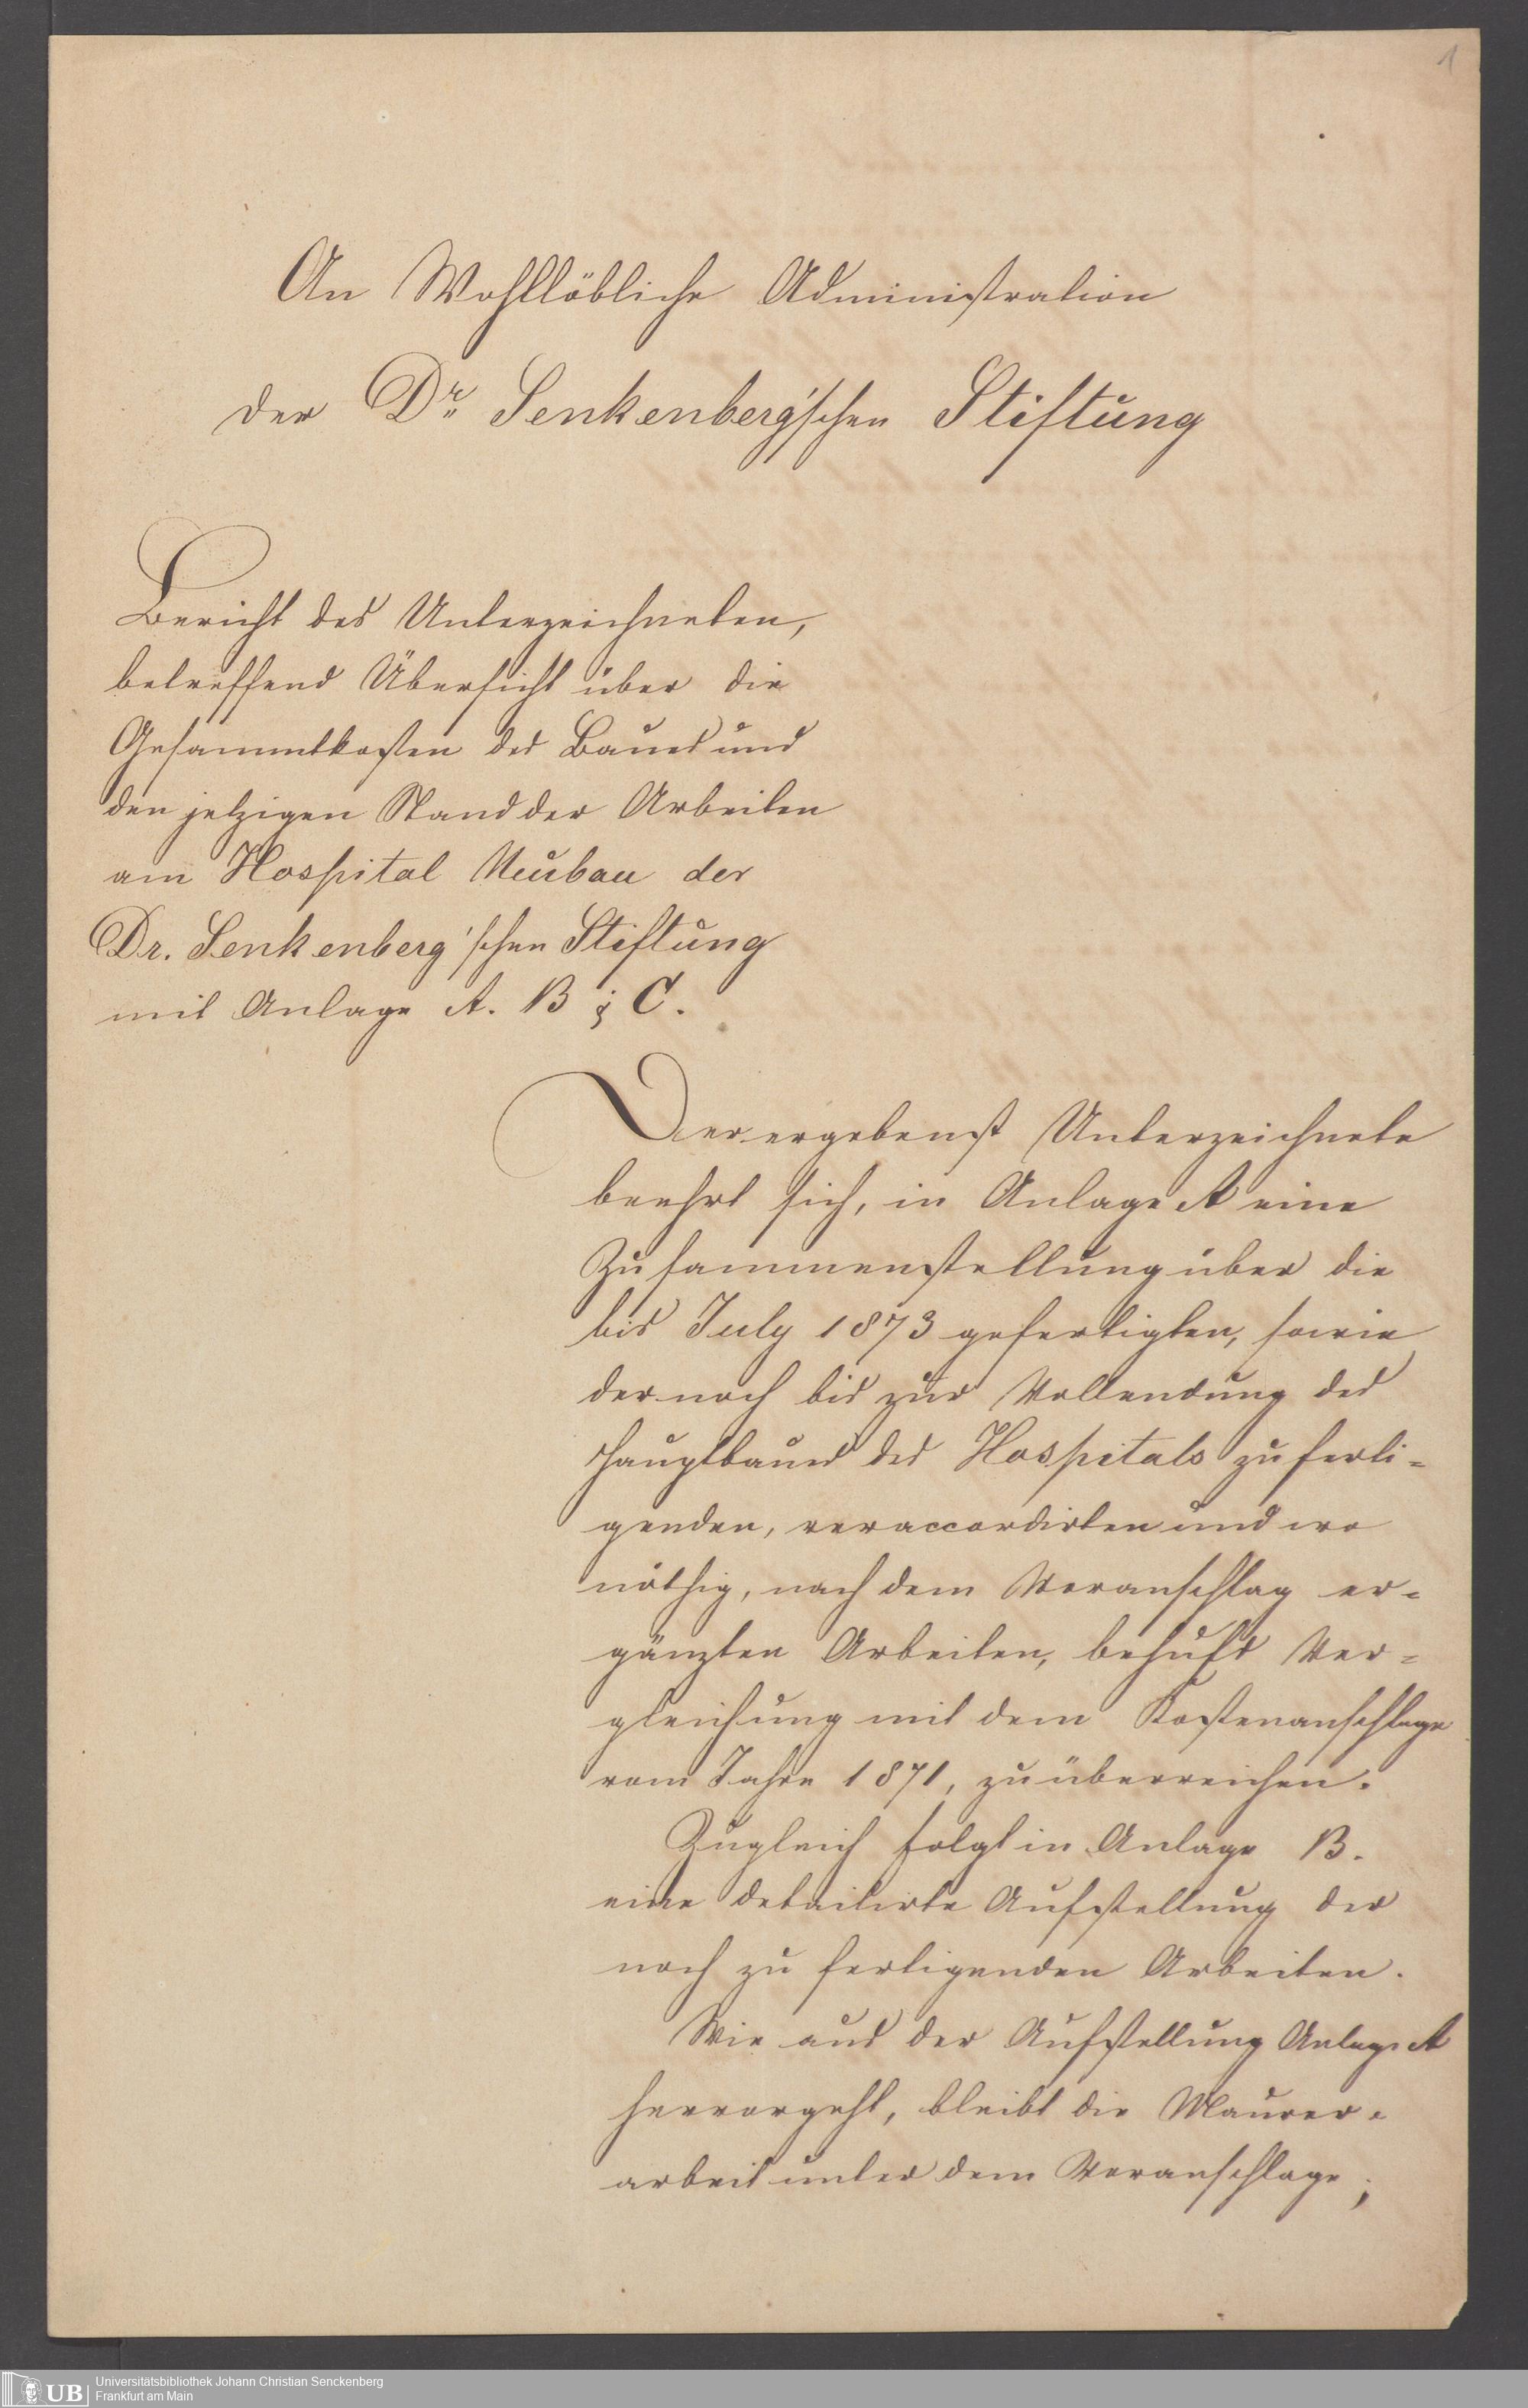 1
An Wohllöbliche Administration
der Dr. Senkenberg'schen Stiftung
Bericht des Unterzeichneten,
betreffend Übersicht über die
Gesammtkosten des Baues und
den jetzigen Stand der Arbeiten
am Hospital Neubau der
Dr. Senkenberg'schen Stiftung
mit Anlage A. B & C.
Der ergebenst Unterzeichnete
beehrt sich, in Anlage A eine
Zusammenstellung über die
bis July 1873 gefertigten, sowie
der noch bis zur Vollendung des
Hauptbaues des Hospitals zu ferti-
genden, veraccordirten und wo
nöthig, nach dem Voranschlag er-
gänzten Arbeiten, behufs Ver-
gleichung mit dem Kostenanschlage
vom Jahre 1871, zu überreichen.
Zugleich folgt in Anlage B.
eine detailirte Aufstellung der
noch zu fertigenden Arbeiten.
Wie aus der Aufstellung Anlage A
hervorgeht, bleibt die Maurer-
arbeit unter dem Voranschlage;
UB
Universitätsbibliothek Johann Christian Senckenberg
Frankfurt am Main